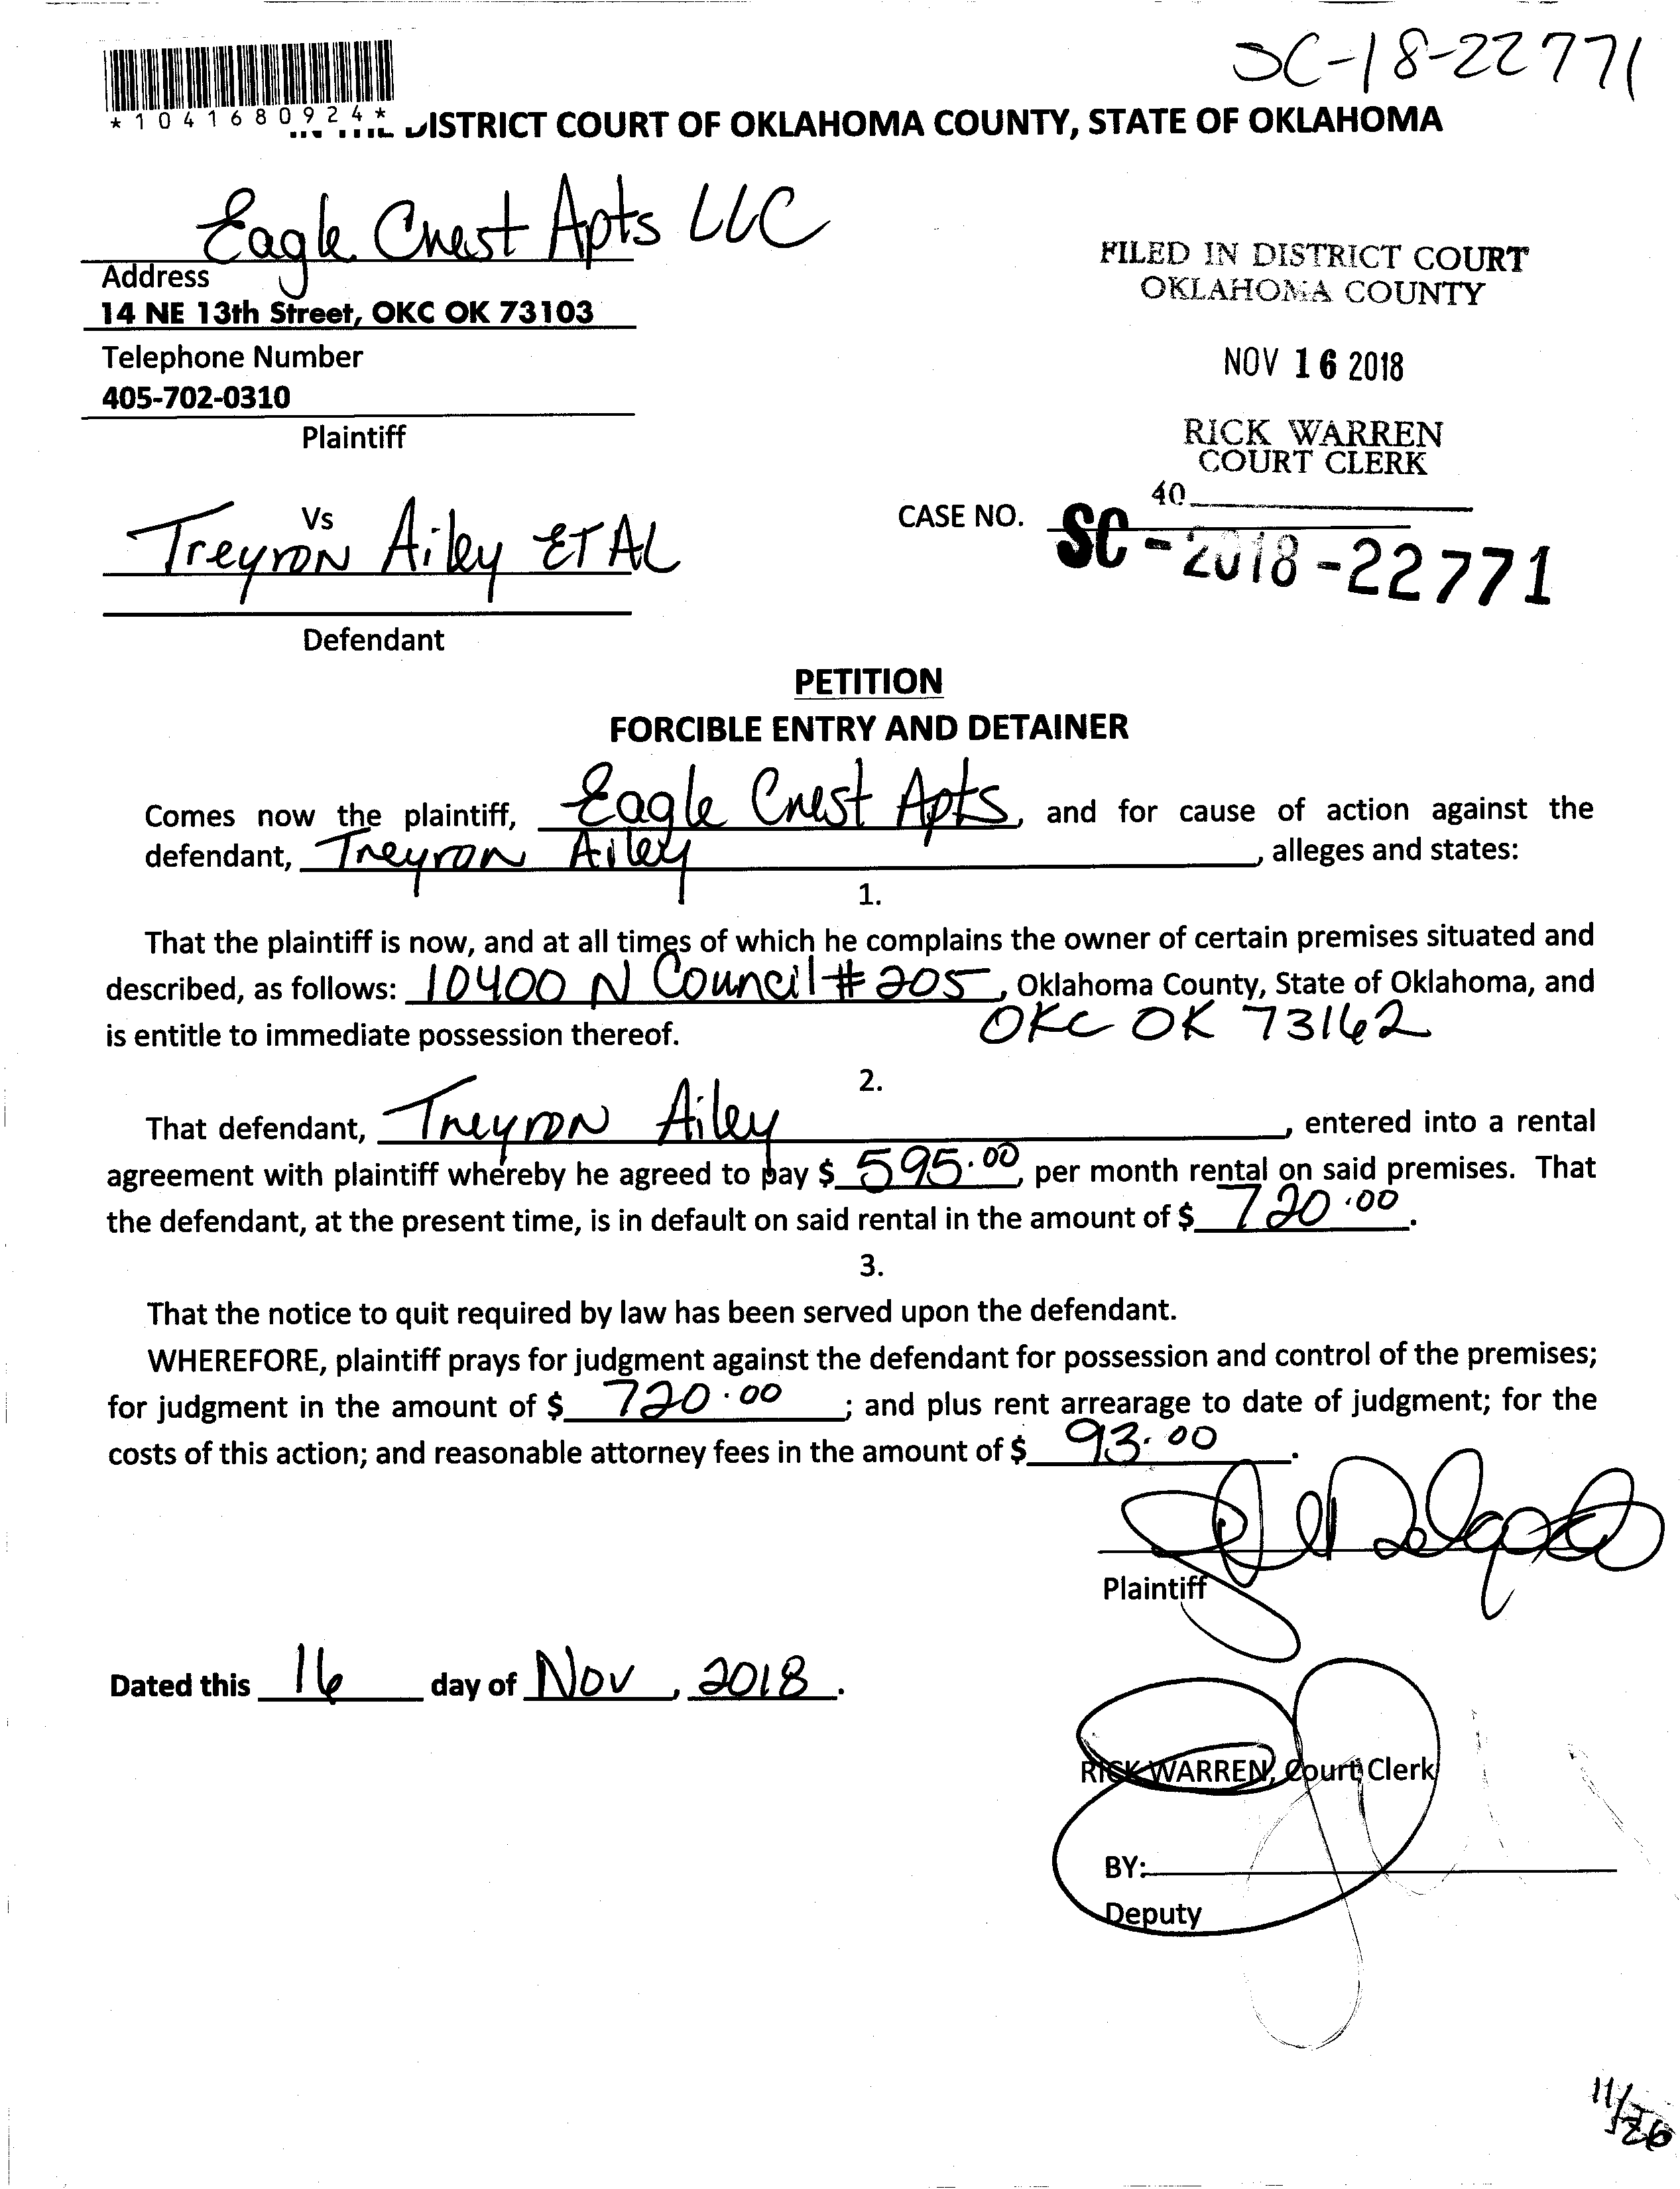 SC-18-22771
*1041680924*
DISTRICT COURT OF OKLAHOMA COUNTY, STATE OF OKLAHOMA
Eagle Crest Apts LLC
Address
14 NE 13th Street, OKC OK 73103
Telephone Number
405-702-0310
Plaintiff
FILED IN DISTRICT COURT
OKLAHOMA COUNTY
NOV 16 2018
RICK WARREN
COURT CLERK
40
CASE NO. SC-2018-22771
Vs
Treyron Ailey ET AL
Defendant
PETITION
FORCIBLE ENTRY AND DETAINER
Comes now the plaintiff, Eagle Crest Apts, and for cause of action against the
defendant, Treyron Ailey, alleges and states:
1.
That the plaintiff is now, and at all times of which he complains the owner of certain premises situated and
described, as follows: 10400 N Council # 205, Oklahoma County, State of Oklahoma, and
is entitle to immediate possession thereof. OKC OK 73162
2.
That defendant, Treyron Ailey, entered into a rental
agreement with plaintiff whereby he agreed to pay $ 595.00, per month rental on said premises. That
the defendant, at the present time, is in default on said rental in the amount of $ 720.00.
3.
That the notice to quit required by law has been served upon the defendant.
WHEREFORE, plaintiff prays for judgment against the defendant for possession and control of the premises;
for judgment in the amount of $ 720.00; and plus rent arrearage to date of judgment; for the
costs of this action; and reasonable attorney fees in the amount of $ 93.00.
Plaintiff
Dated this 16 day of Nov, 2018.
RICK WARREN, Court Clerk
BY:
Deputy
11/26